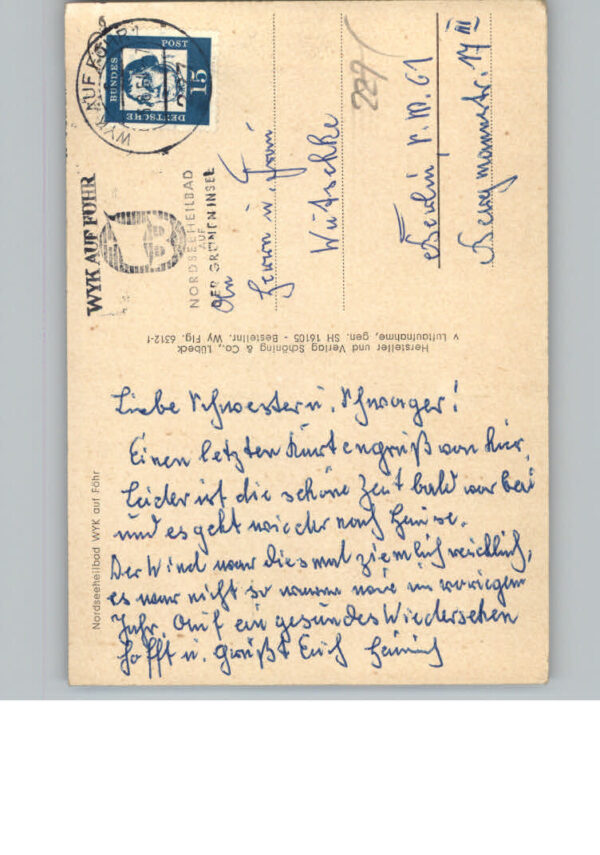 Liebe Schwester u. Schwager!
Einen letzten Kartengruß von hier,
leider ist die schöne Zeit bald vorbei
und es geht wieder nach Hause.
Der Wind war diesmal ziemlich reichlich,
es war nicht so warm wie im vorigem
Jahr. Auf ein gesundes Wiedersehen
hofft u. grüßt Euch Heinrich
Nordseeheilbad WYK auf Föhr
Hersteller und Verlag Schöning & Co., Lübeck
v Luftaufnahme, gen. SH 16105 - Bestellnr. Wy Flg. 6312-f
WYK AUF FÖHR
NORDSEEHEILBAD
AUF
DER GRÜNEN INSEL
WYK AUF FÖHR
DEUTSCHE
BUNDES
POST
15
An
Herrn u. Frau
Wutschke
Berlin, S.W. 61
Bergmannstr. 17 III